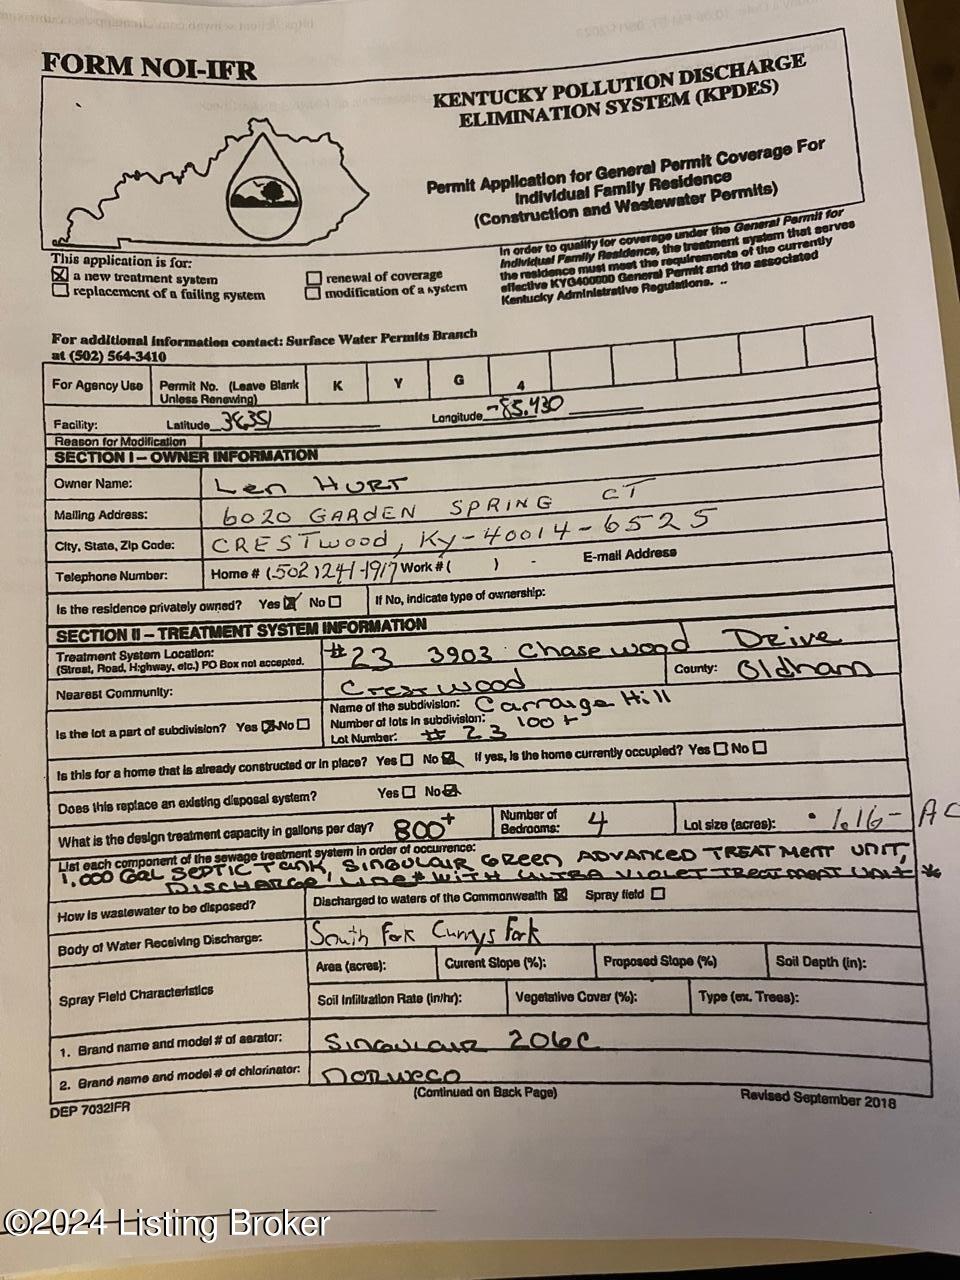 FORM NOI-IFR
KENTUCKY POLLUTION DISCHARGE
ELIMINATION SYSTEM (KPDES)
Permit Application for General Permit Coverage For
Individual Family Residence
(Construction and Wastewater Permits)
This application is for:
☒ a new treatment system
☐ replacement of a failing system
☐ renewal of coverage
☐ modification of a system
In order to qualify for coverage under the General Permit for
Individual Family Residence, the treatment system that serves
the residence must meet the requirements of the currently
effective KYG400000 General Permit and the associated
Kentucky Administrative Regulations.
For additional information contact: Surface Water Permits Branch
at (502) 564-3410
For Agency Use Permit No. (Leave Blank Unless Renewing) K Y G 4
Facility: Latitude Longitude -85.430
Reason for Modification
SECTION I – OWNER INFORMATION
Owner Name: Len HURT
Mailing Address: 6020 GARDEN SPRING CT
City, State, Zip Code: CRESTWOOD, KY-40014-6525
Telephone Number: Home # (502) 241-1917 Work # ( ) - E-mail Address
Is the residence privately owned? Yes ☒ No ☐ If No, indicate type of ownership:
SECTION II – TREATMENT SYSTEM INFORMATION
Treatment System Location: #23 3903 Chasewood Drive
(Street, Road, Highway, etc.) PO Box not accepted.
Nearest Community: Crestwood County: Oldham
Is the lot a part of subdivision? Yes ☒ No ☐
Name of the subdivision: Carraige Hill
Number of lots in subdivision: 100+
Lot Number: #23
Is this for a home that is already constructed or in place? Yes ☐ No ☒ If yes, is the home currently occupied? Yes ☐ No ☐
Does this replace an existing disposal system? Yes ☐ No ☒
What is the design treatment capacity in gallons per day? 800+ Number of Bedrooms: 4 Lot size (acres): 1.16-AC
List each component of the sewage treatment system in order of occurrence:
1,000 GAL SEPTIC TANK, SINGULAIR GREEN ADVANCED TREATMENT UNIT,
DISCHARGE LINE WITH ULTRA VIOLET TREATMENT UNIT *
How is wastewater to be disposed? Discharged to waters of the Commonwealth ☒ Spray field ☐
Body of Water Receiving Discharge: South Fork Currys Fork
Spray Field Characteristics
Area (acres): Current Slope (%): Proposed Slope (%) Soil Depth (in):
Soil Infiltration Rate (in/hr): Vegetative Cover (%): Type (ex. Trees):
1. Brand name and model # of aerator: SINGULAIR 206C
2. Brand name and model # of chlorinator: NORWECO
(Continued on Back Page)
DEP 7032IFR
Revised September 2018
©2024 Listing Broker